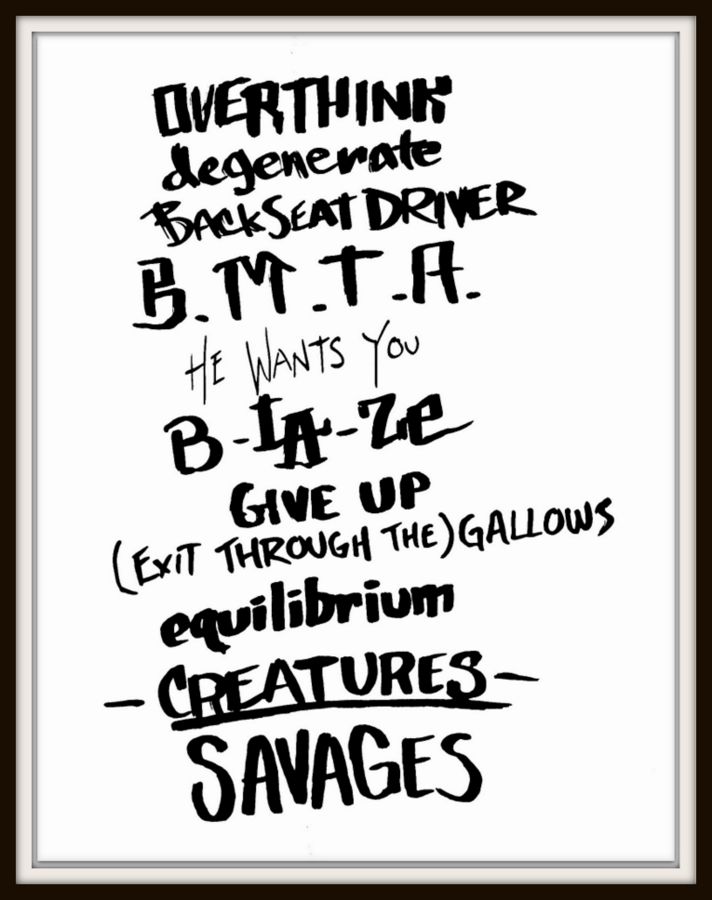 OVERTHINK
degenerate
BACKSEAT DRIVER
B.M.T.A.
HE WANTS YOU
B-IA-Ze
GIVE UP
(EXIT THROUGH THE) GALLOWS
equilibrium
- CREATURES -
SAVAGES